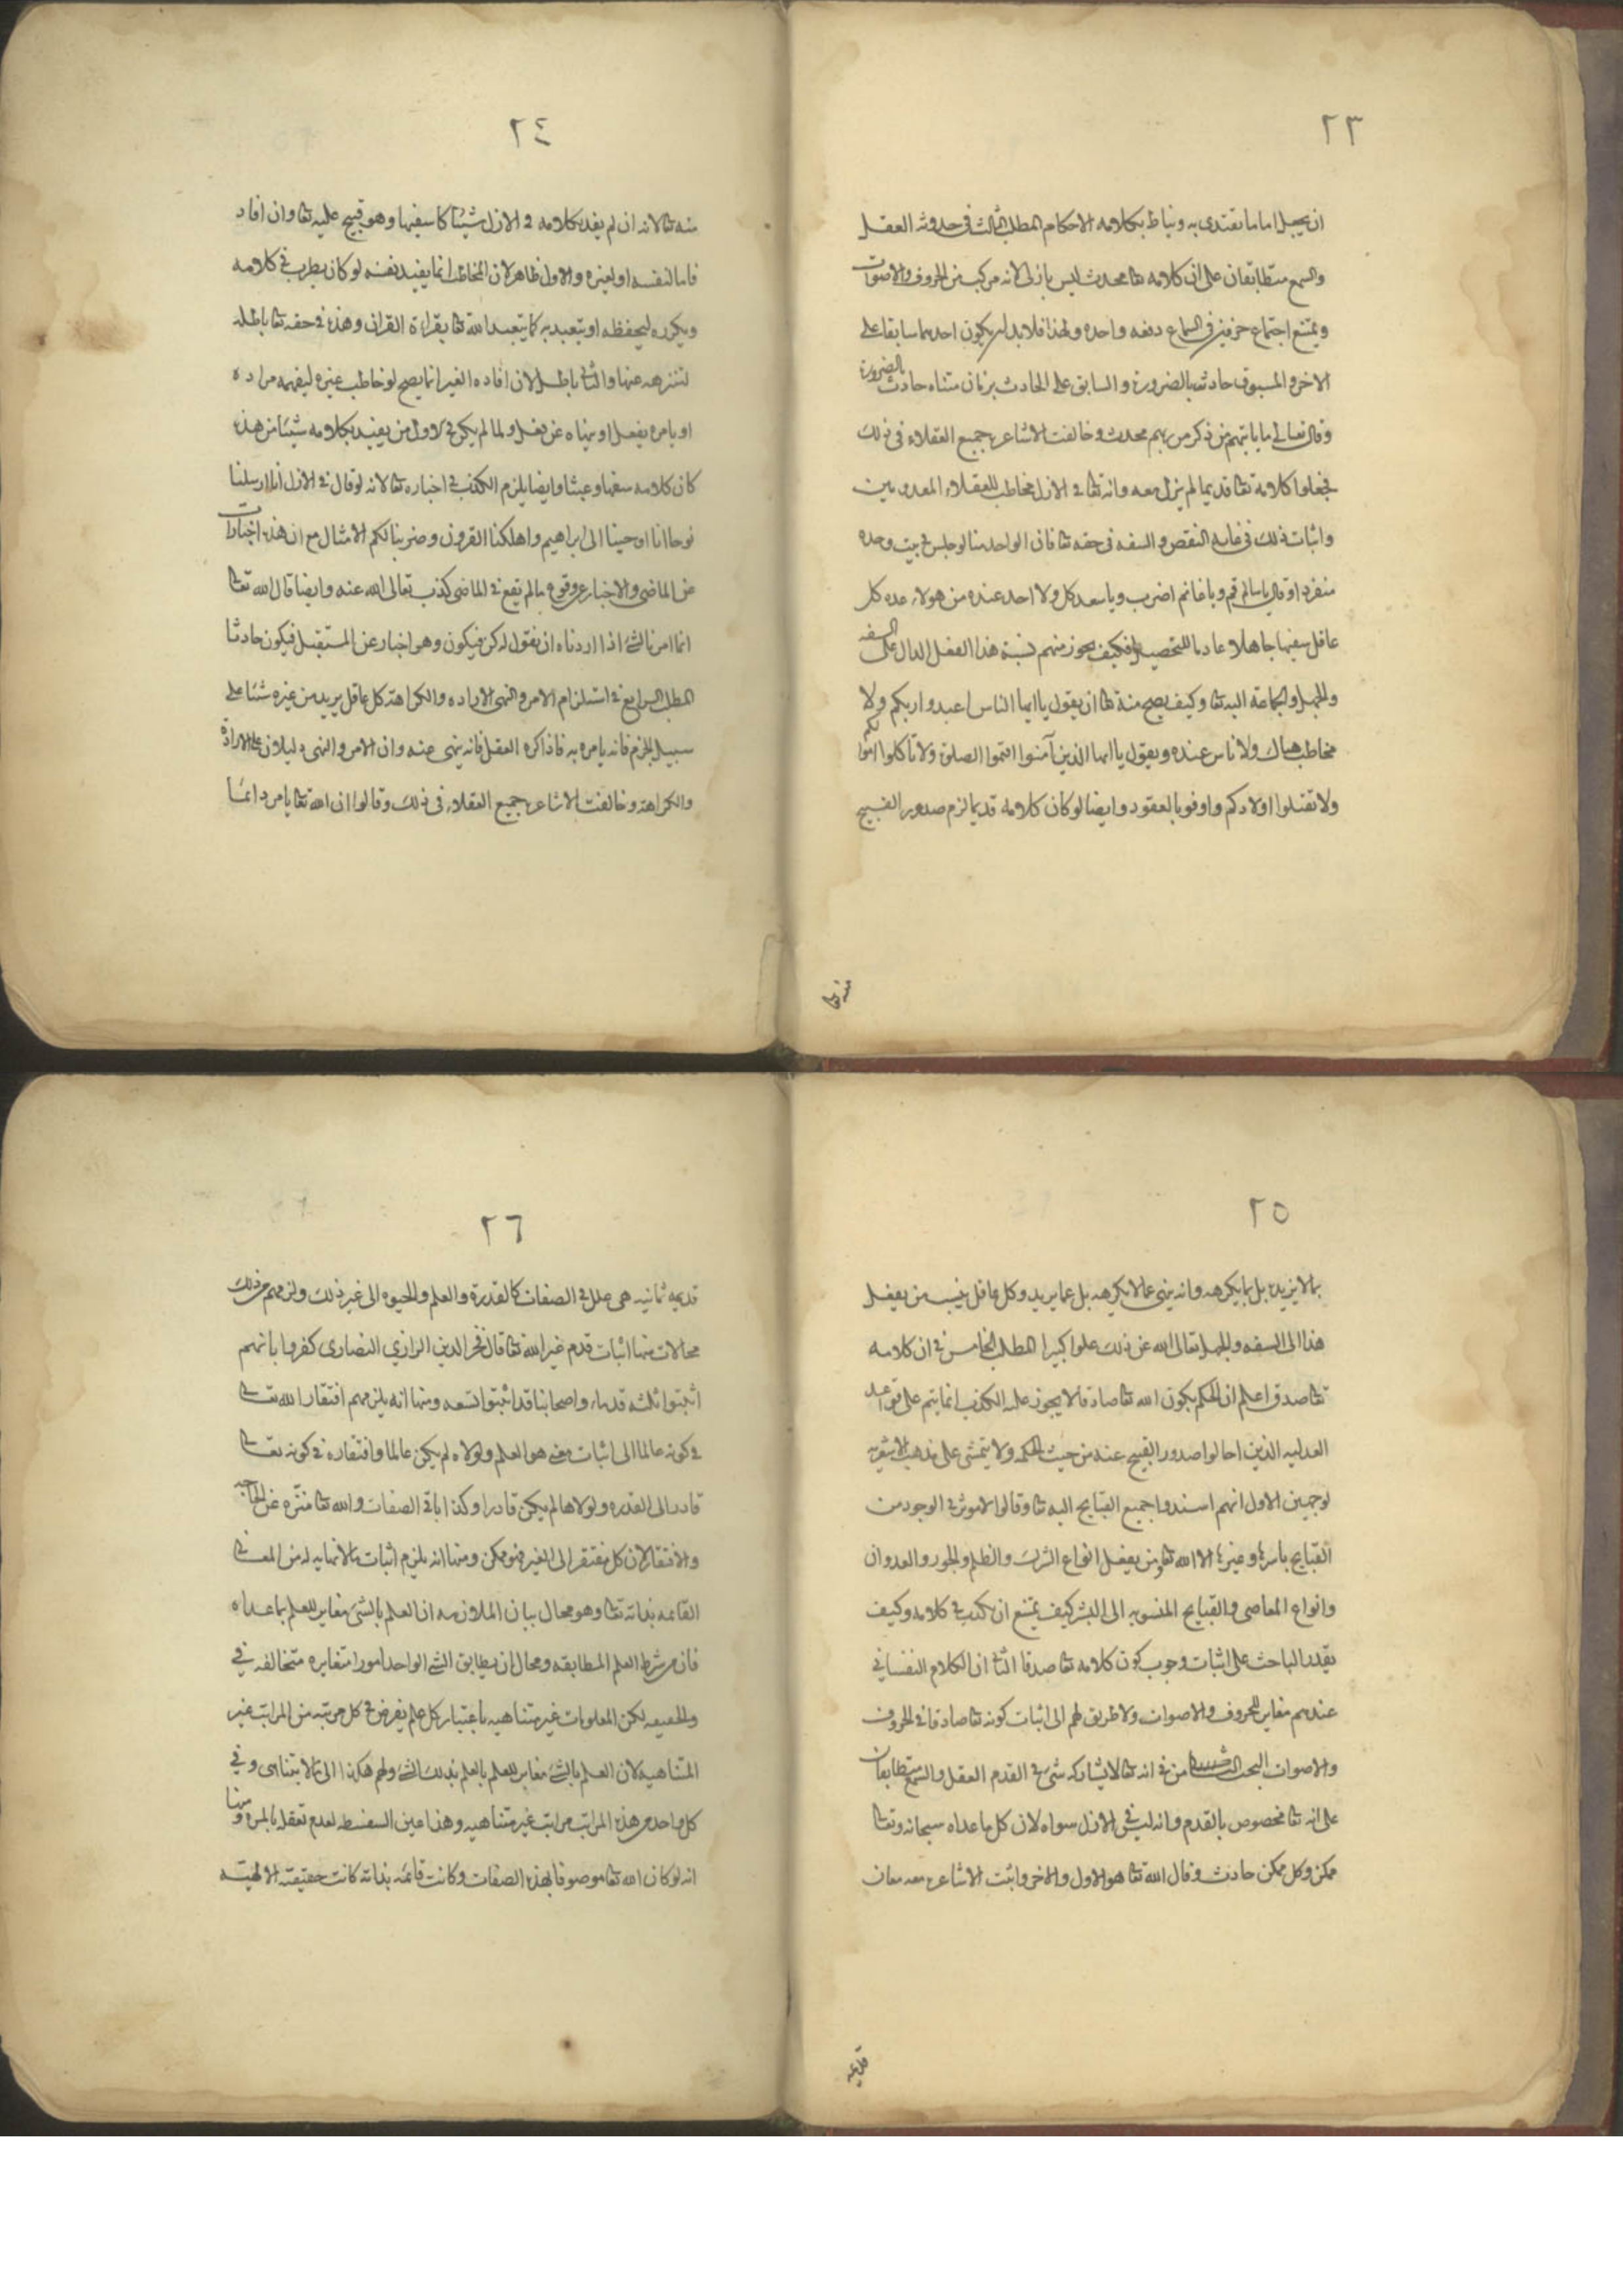 ٢٣
ان يجعل اماما يقتدى به ويناط بكلامه الاحكام المطلب الثالث فى حدوثه العقل
والسمع متطابقان على ان كلامه تعا محدث ليس بازلى لانه مركب من الحروف والاصوات
ويمتنع اجتماع حرفين فى السماع دفعه واحده ولهذا فلابد ان يكون احدهما سابقا على
الاخر والمسبوق حادث بالضرورة والسابق على الحادث بزمان متناه حادث بالضرورة
وقال تعالى ما ياتيهم من ذكر من ربهم محدث وخالفت الاشاعره جميع العقلاء فى ذلك
فجعلوا كلامه تعا قديما لم يزل معه وانه تعا فى الازل مخاطب للعقلاء المعدومين
واثبات ذلك فى غاية النقص والسفه فى حقه تعا فان الواحد منا لو جلس فى بيت وحده
منفردا وقال يا سالم قم ويا غانم اضرب ويا سعد كل ولا احد عنده من هولاء عده كل
عاقل سفيها جاهلا عادما للتحصيل فكيف يجوز منهم نسبة هذا الفعل الدال على السفه
والجهل والحماقة اليه تعا وكيف يصح منه تعا ان يقول يا ايها الناس اعبدوا ربكم ولا
مخاطب هناك ولا ناس عنده ويقول يا ايها الذين آمنوا اقيموا الصلوة ولا تاكلوا اموالكم
ولا تقتلوا اولادكم واوفوا بالعقود وايضا لو كان كلامه قديما لزم صدور القبيح
منه تعا
٢٤
منه تعا لانه ان لم يفد بكلامه فى الازل شيئا كا سفيها وهو قبيح عليه تعا وان افاد
فاما لنفسه او لغيره والاول ظاهر لان المخاطب انما يفيد نفسه لو كان يطرب فى كلامه
ويكرره ليحفظه او يتعبد به كما يتعبد الله تعا بقراءة القران وهذه فى حقه تعا باطله
لتنزهه عنها والثانى باطل لان افاده الغير انما يصح لو خاطب غيره ليفهمه مراده
او يامره بفعل او ينهاه عن فعل ولما لم يكن فى الازل من يفيد بكلامه شيئا من هذه
كان كلامه سفها وعبثا وايضا يلزم الكذب فى اخباره تعا لانه لو قال فى الازل انا ارسلنا
نوحا انا اوحينا الى ابراهيم واهلكنا القرون وضربنا لكم الامثال مع ان هذه اخبارات
عن الماضى والاخبار عن وقوع مالم يقع فى الماضى كذب تعالى الله عنه وايضا قال الله تعا
انما امرنا لشئ اذا اردناه ان نقول له كن فيكون وهو اخبار عن المستقبل فيكون حادثا
المطلب الرابع فى استلزام الامر والنهى الاراده والكراهة كل عاقل يريد من غيره شئا على
سبيل الجزم فانه يامره به فاذا كره الفعل فانه ينهى عنه وان الامر والنهى دليلان على الارادة
والكراهة وخالفت الاشاعره جميع العقلاء فى ذلك وقالوا ان الله تعا يامر دائما
٢٥
بما لا يريده بل بما يكرهه وانه ينهى عما لا يكرهه بل عما يريد وكل عاقل ينسب من يفعل
هذا الى السفه والجهل تعالى الله عن ذلك علوا كبيرا المطلب الخامس فى ان كلامه
تعا صدق اعلم ان الحكم بكون الله تعا صادقا لا يجوز عليه الكذب انما يتم على قواعد
العدليه الذين احالوا صدور القبيح عنه من حيث الحكمه ولا يتمشى على مذهب الاشعريه
لوجهين الاول انهم اسندوا جميع القبايح اليه تعا وقالوا لا موثر فى الوجود من
القبايح باسرها وغيرها الا الله تعا ومن يفعل انواع الشرك والظلم والجور والعدوان
وانواع المعاصى والقبايح المنسوبه الى البشر كيف يمتنع ان يكذب فى كلامه وكيف
يقدر الباحث على اثبات وجوب كون كلامه تعا صدقا الثانى ان الكلام النفسانى
عندهم مغاير للحروف والاصوات ولا طريق لهم الى اثبات كونه تعا صادقا فى الحروف
والاصوات البحث الثامن فى انه تعا لا يشاركه شئ فى القدم العقل والسمع متطابقان
على انه تعا مخصوص بالقدم وانه ليس فى الازل سواه لان كل ما عداه سبحانه وتعا
ممكن وكل ممكن حادث وقال الله تعا هو الاول والاخر واثبت الاشاعره معه معان
قديمه
٢٦
قديمه ثمانيه هى علل فى الصفات كالقدرة والعلم والحيوه الى غير ذلك ولزمهم من ذلك
محالات منها اثبات قدم غير الله تعا قال فخر الدين الرازي النصارى كفروا بانهم
اثبتوا ثلثه قدماء واصحابنا قد اثبتوا تسعه ومنها انه يلزمهم افتقار الله تعالى
فى كونه عالما الى اثبات معنى هو العلم ولولاه لم يكن عالما وافتقاره فى كونه تعالى
قادرا الى القدره ولولاها لم يكن قادرا وكذا باقى الصفات والله تعا منزه عن الحاجه
والافتقار لان كل مفتقر الى الغير فهو ممكن ومنها انه يلزم اثبات مالا نهايه له من المعانى
القائمه بذاته تعا وهو محال بيان الملازمه ان العلم بالشئ مغاير للعلم بما عداه
فان من شرط العلم المطابقه ومحال ان يطابق الشئ الواحد امورا متغايره متخالفه فى
والحقيقه لكن المعلومات غير متناهيه باعتبار كل علم يفرض فى كل مرتبه من المراتب غير
المتناهيه لان العلم بالشئ مغاير للعلم بالعلم بذلك الشئ ولهم هكذا الى مالا يتناهى وفى
كل واحد من هذه المراتب مراتب غير متناهيه وهذا عين السفسطه لعدم تعقله بالمره ومنها
انه لو كان الله تعا موصوفا بهذه الصفات وكانت قائمه بذاته كانت حقيقته الالهيه